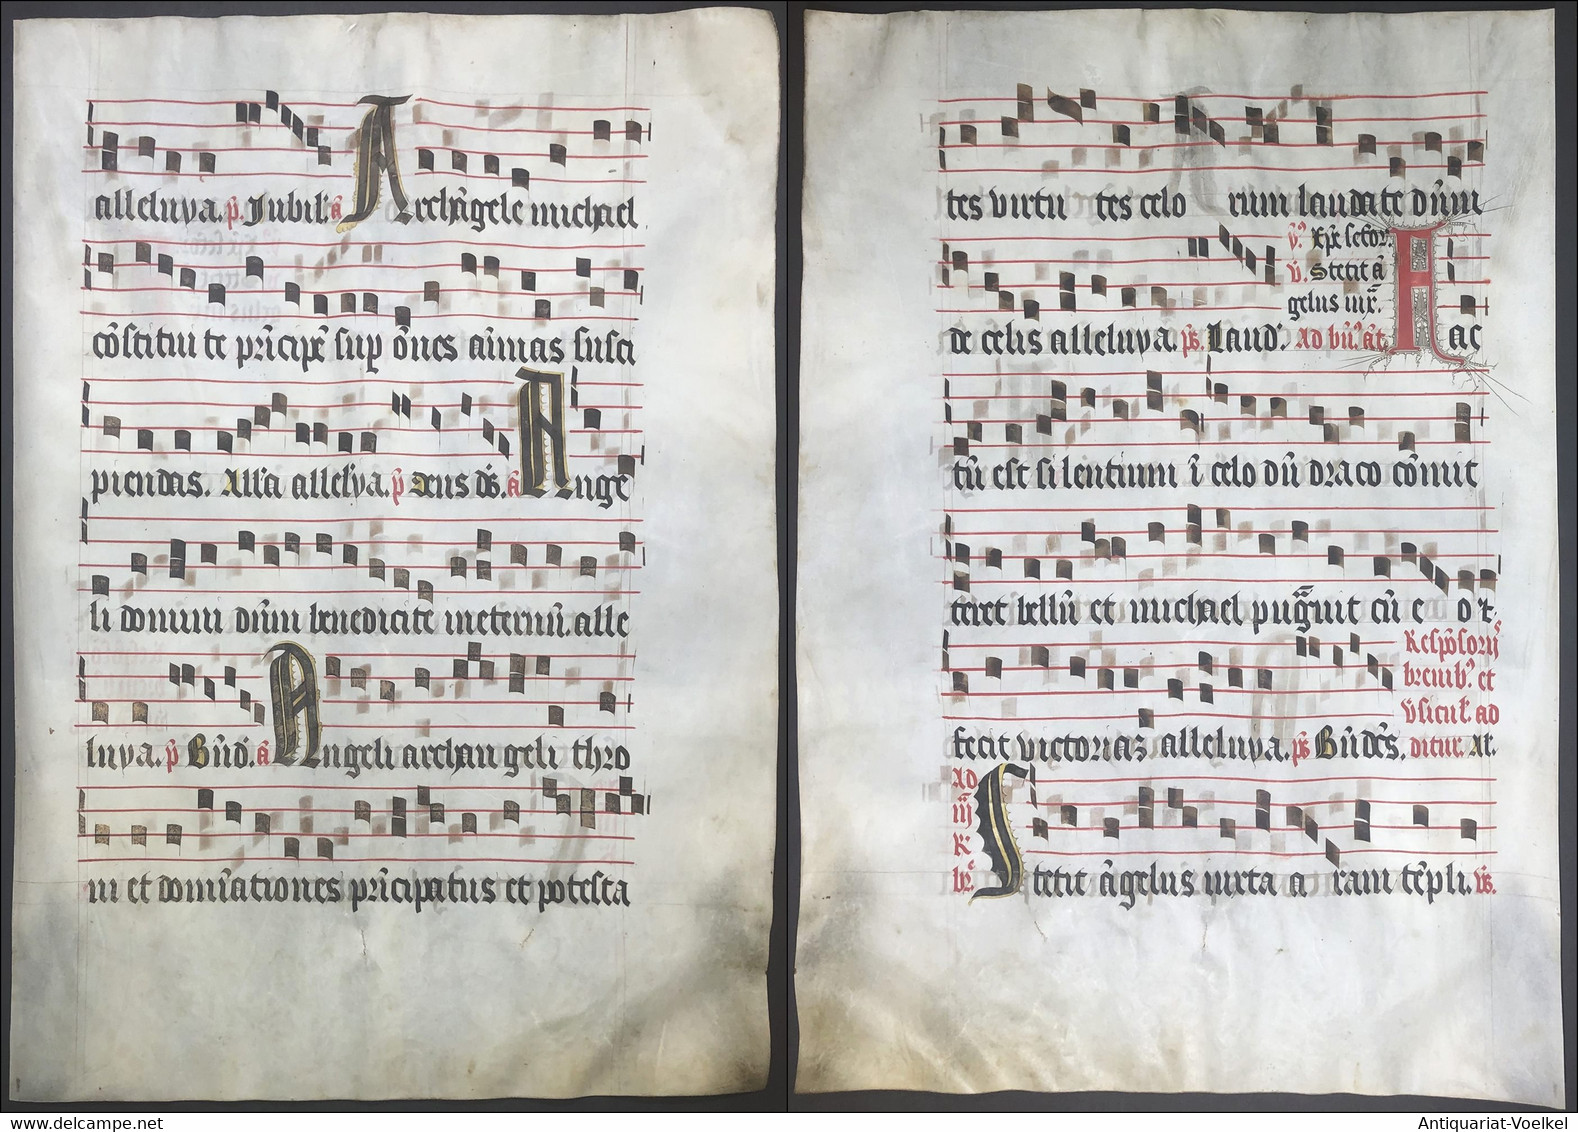 alleluya. p̄. Jubil'. a Archāgele michael
cōstitui te pri̅cipē sup̱ ōnes aīmas susci
piendas. All'a allel'ya. p̄ Deus ds̄. a Ange
li domini dn̄m benedicite ineternū. alle
luya. p̄ Bn̄d'. a Angeli archangeli thro
ni et domi̅ationes pri̅cipatus et potesta
tes virtu tes celo rum laudate dn̄m
v̄. Xp̄e
v̄. Stetit ā
gelus iux̄.
de celis alleluya. ps̄. Laud'. Ad bn̄. at̄. Fac
tū est silentium ī celo dū draco cōmit
teret bellū et michael pug̃uit cū e o 't
Respōsorij
breuib'. et
v̄sicul'. ad
fecit victoriaz alleluya. ps̄ Bn̄ dc̄s. ditur. Ar.
Ad
iij
R̄
br'.
Stetit āgelus iuxta a ram tēpli. v̄s.
Antiquariat-Voelkel
© delcampe.net